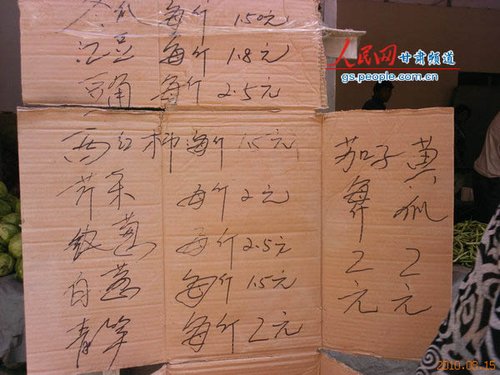 人民网 甘肃频道
gs.people.com.cn
冬瓜 每斤 1.50元
江豆 每斤 1.8元
豆角 每斤 2.5元
西红柿 每斤 1.5元
芹菜 每斤 2元
每斤 2.5元
白 每斤 1.5元
青笋 每斤 2元
黄瓜 2元
茄子 2元